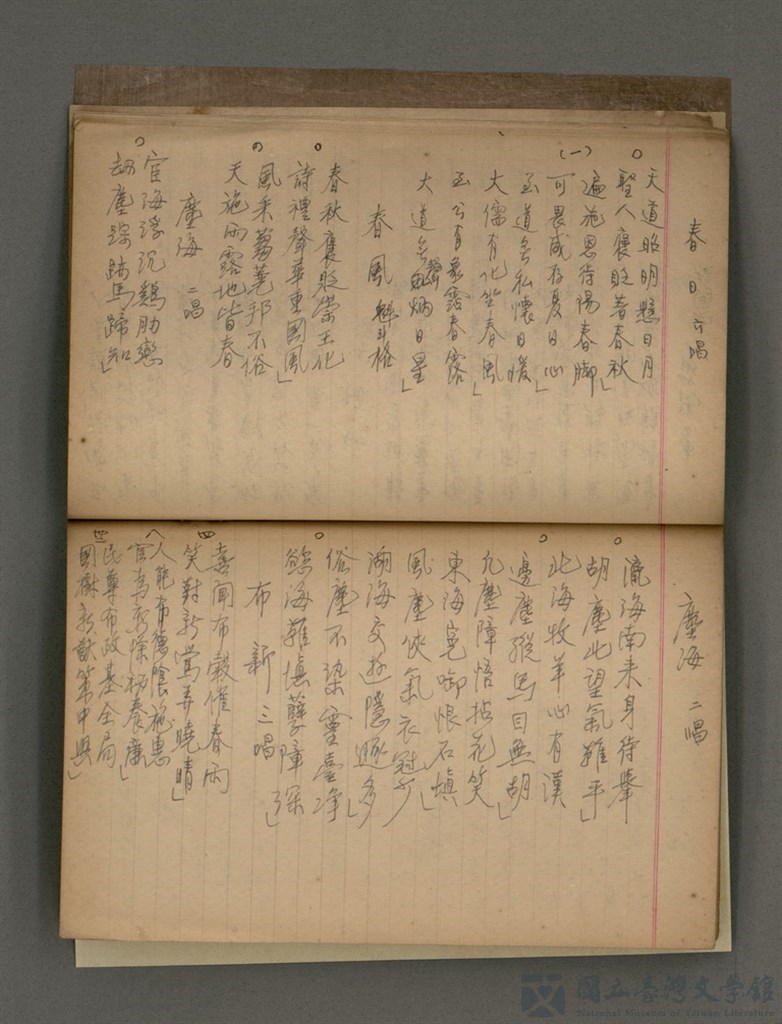 春日 六唱
天道昭明懸日月
聖人褒貶著春秋」
遍施恩待陽春脚
可畏威存夏日心」
(一)
至道無私懷日暖
大儒有化坐春風」
至公有象露春露
大道無聲炳日星」
春風 魁斗格
春秋褒貶崇王化
詩禮聲華重國風」
風采蒭蕘邦不俗
天施雨露地皆春
塵海 二唱
宦海浮沉鷄肋戀
劫塵踪跡馬蹄知」
塵海 二唱
瀛海南來身待舉
胡塵北望氣難平」
北海牧羊心有漢
邊塵縱馬目無胡」
九塵障悟拈花笑
東海冤啣恨石填」
風塵俠氣衣冠少
湖海交遊隱逐多」
俗塵不染靈臺净
慾海難填孽障深」
布新 三唱
四
喜聞布穀催春雨
笑對新鶯弄曉晴」
八
人能布德陰施惠
民華布政基全局
國樹新猷策中興」
國立臺灣文學館
National Museum of Taiwan Literature